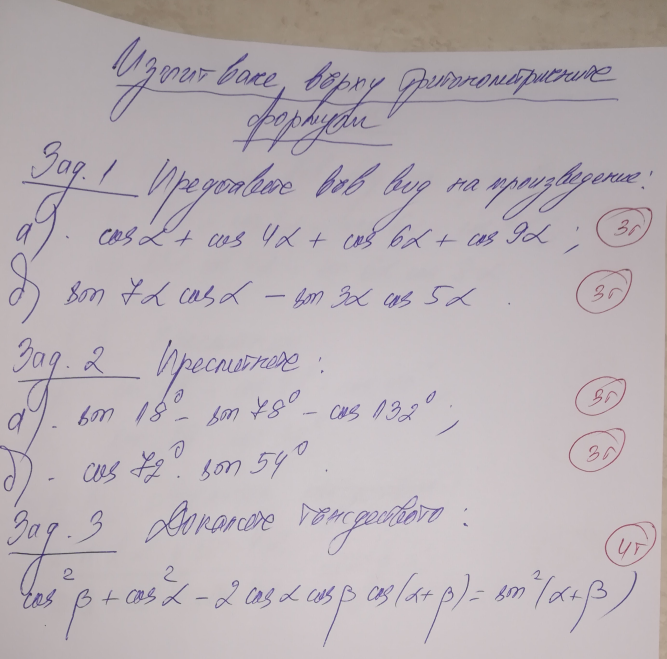 Изпитване върху тригонометричните
формули
Зад. 1 Представете във вид на произведение:
а). cos α + cos 4α + cos 6α + cos 9α ; 3т
б) sin 7α cos α – sin 3α cos 5α . 3т
Зад. 2 Пресметнете :
а). sin 18° – sin 78° – cos 132° ; 3т
б). cos 72° . sin 54° . 3т
Зад. 3 Докажете тъждеството : 4т
cos² β + cos² α – 2 cos α cos β cos (α + β) = sin² (α + β)